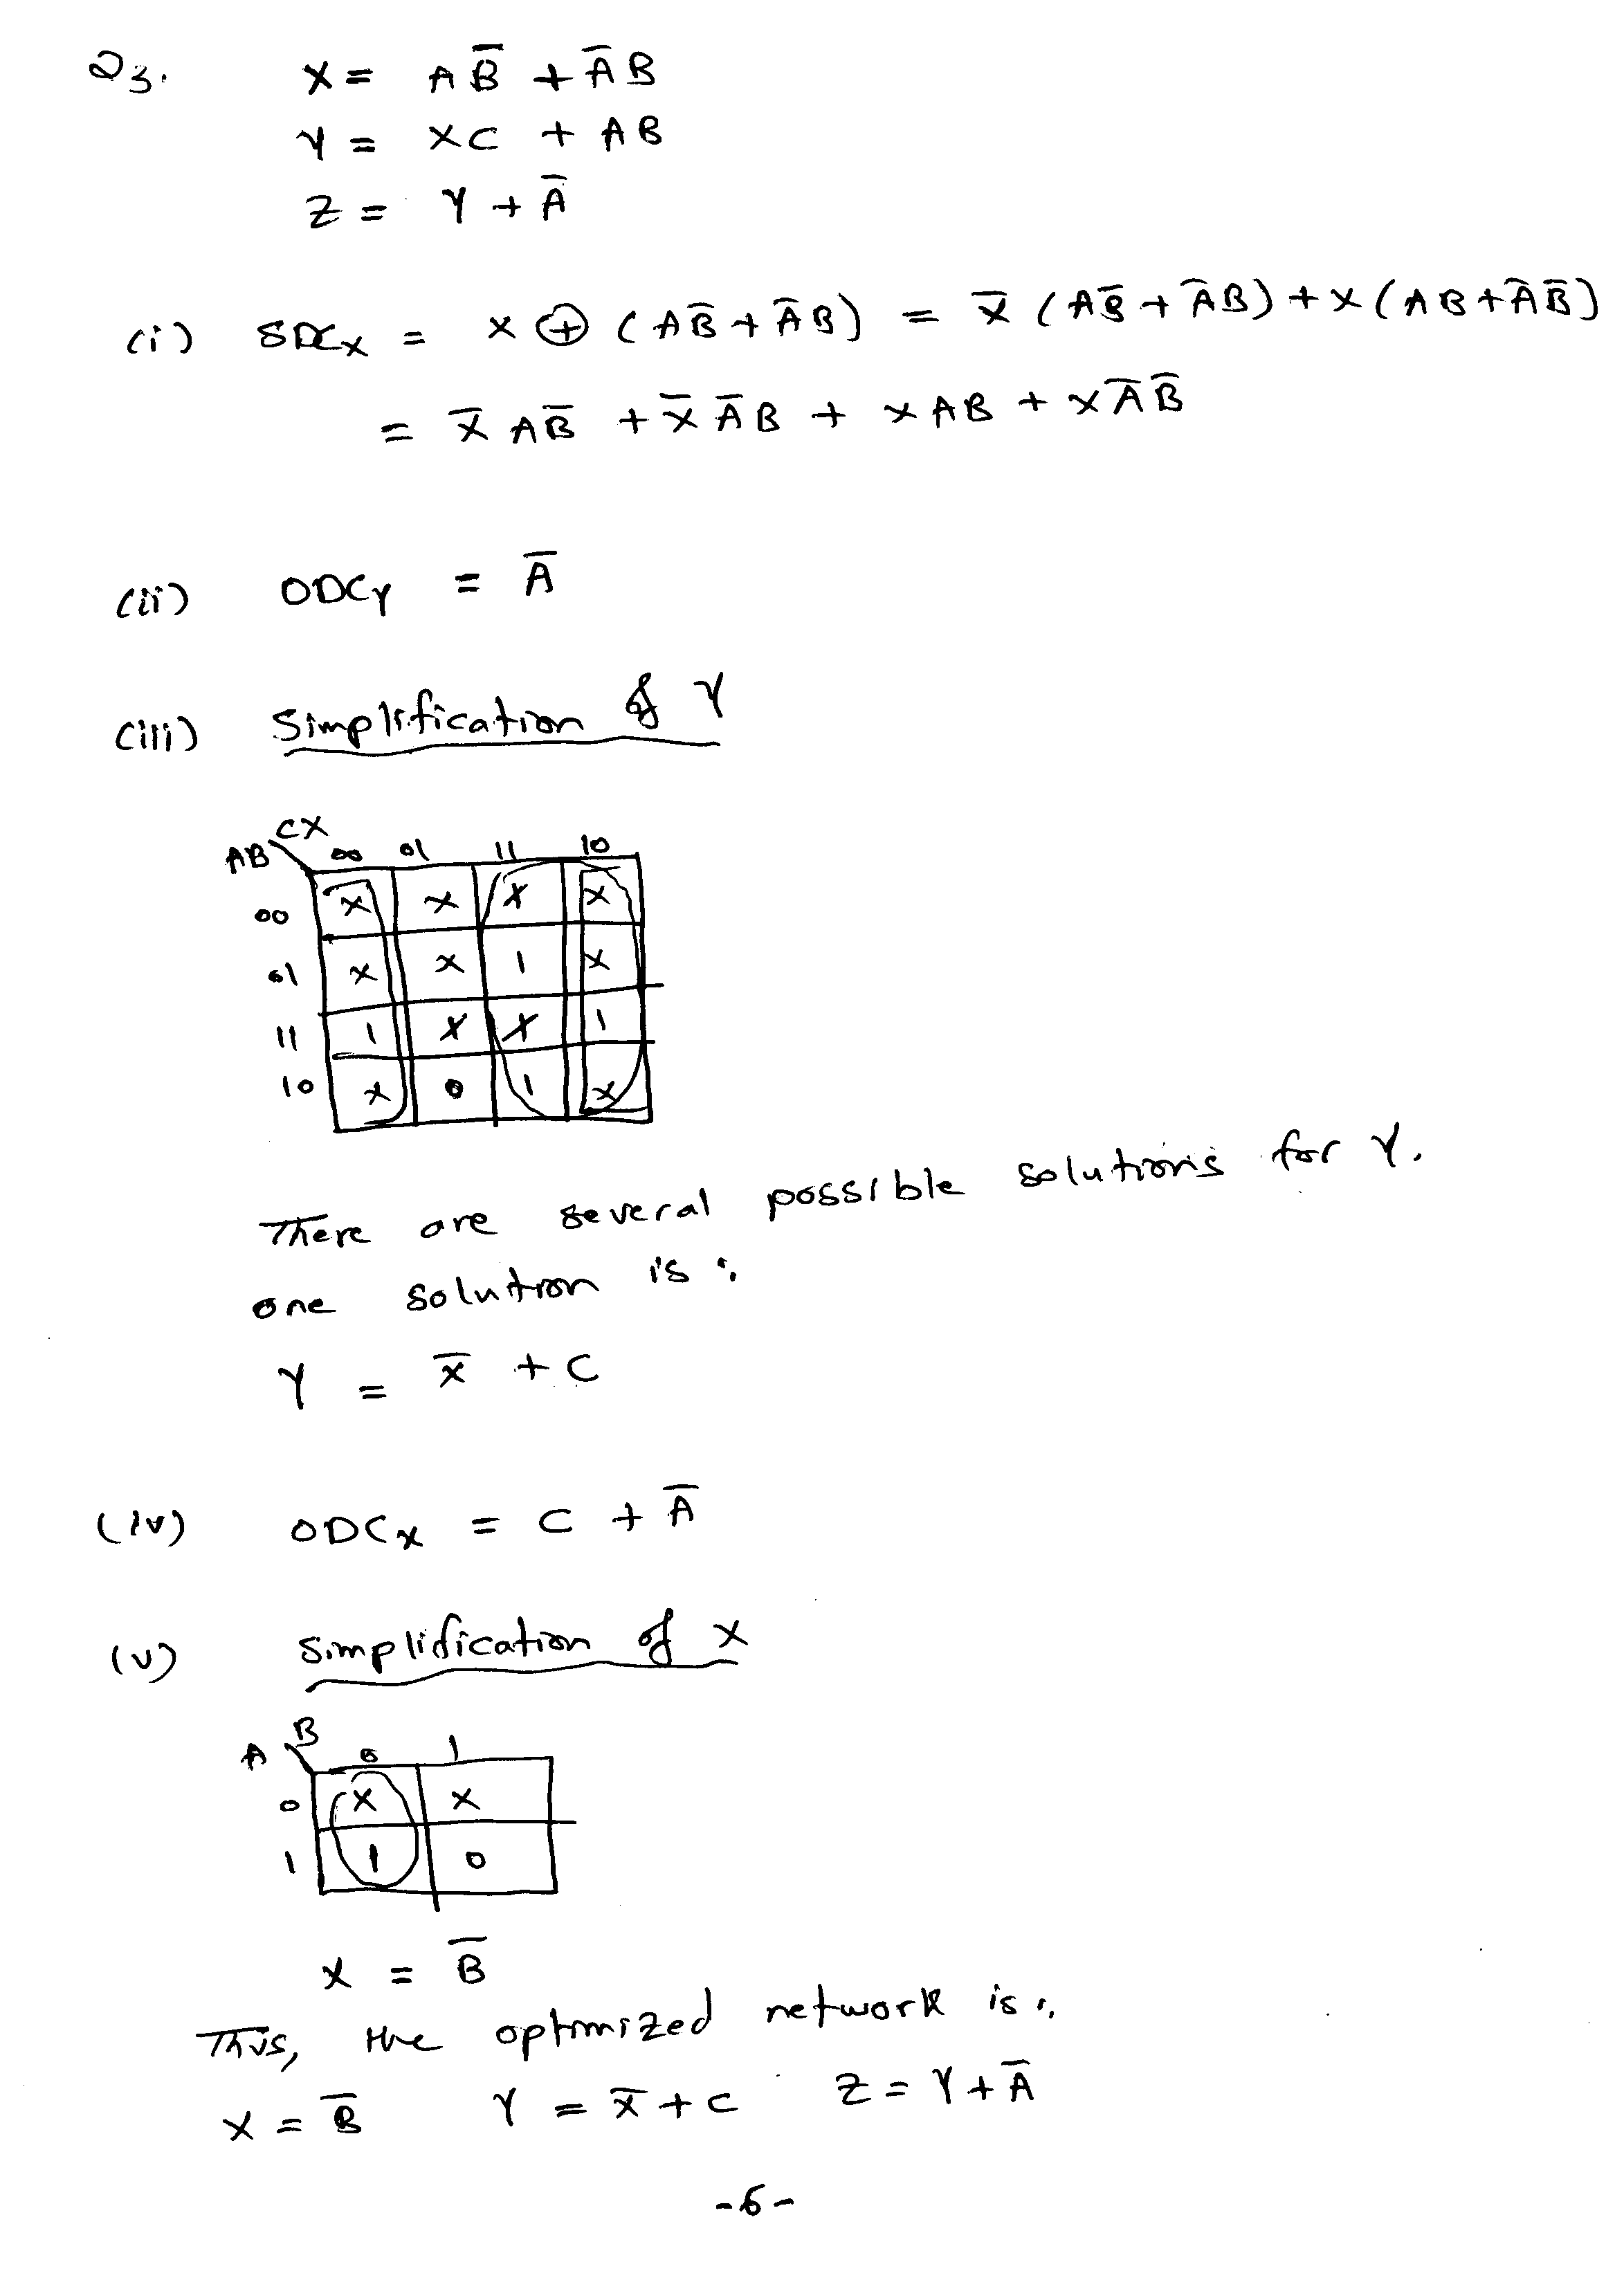 Q3. X = AB̅ + A̅B
Y = XC + AB
Z = Y + A̅
(i) SDCx = X ⊕ (AB̅ + A̅B) = X̅ (AB̅ + A̅B) + X (AB + A̅B̅)
= X̅AB̅ + X̅A̅B + XAB + XA̅B̅
(ii) ODCY = A̅
(iii) Simplification of Y
CX
AB 00 01 11 10
00 X X X X
01 X X 1 X
11 1 X X 1
10 X 0 1 X
There are several possible solutions for Y.
one solution is :
Y = X̅ + C
(iv) ODCx = C + A̅
(v) Simplification of X
B
A 0 1
0 X X
1 1 0
X = B̅
Thus, the optimized network is :
X = B̅ Y = X̅ + C Z = Y + A̅
-6-